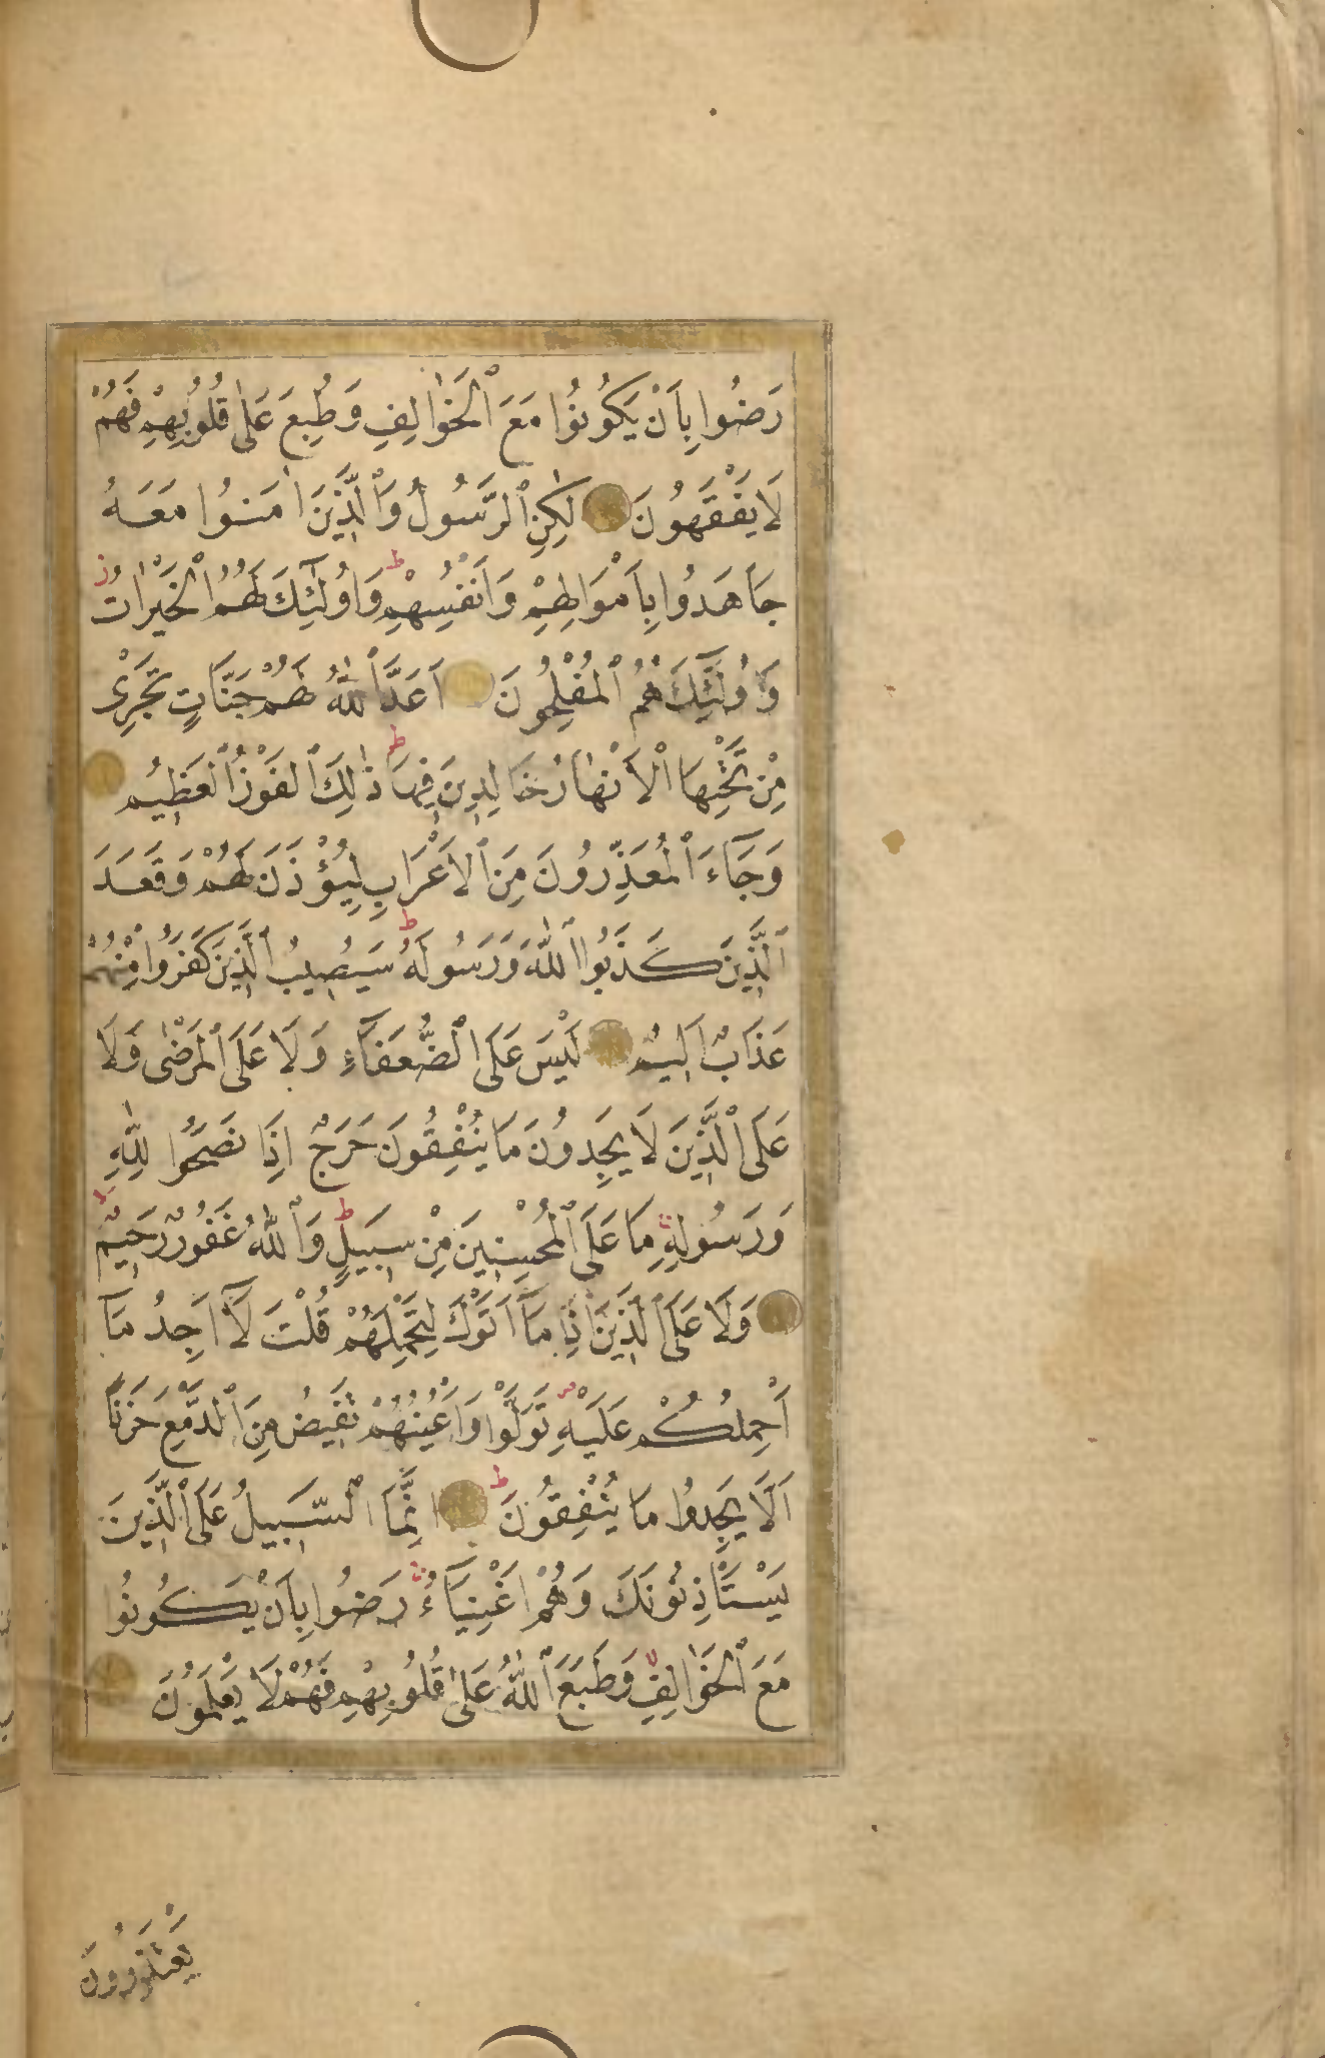 رَضُوا بِاَنْ يَكُونُوا مَعَ ٱلْخَوَالِفِ وَطُبِعَ عَلٰى قُلُوبِهِمْ فَهُمْ
لَا يَفْقَهُونَ لٰكِنِ ٱلرَّسُولُ وَٱلَّذِينَ اٰمَنُوا مَعَهُ
جَاهَدُوا بِاَمْوَالِهِمْ وَاَنْفُسِهِمْ ط وَاُولٰٓئِكَ لَهُمُ ٱلْخَيْرَاتُ ز
وَاُولٰٓئِكَ هُمُ ٱلْمُفْلِحُونَ اَعَدَّ ٱللّٰهُ لَهُمْ جَنَّاتٍ تَجْرِى
مِنْ تَحْتِهَا ٱلْاَنْهَارُ خَالِدِينَ فِيهَا ط ذٰلِكَ ٱلْفَوْزُ ٱلْعَظِيمُ
وَجَآءَ ٱلْمُعَذِّرُونَ مِنَ ٱلْاَعْرَابِ لِيُؤْذَنَ لَهُمْ وَقَعَدَ
ٱلَّذِينَ كَذَبُوا ٱللّٰهَ وَرَسُولَهُ ط سَيُصِيبُ ٱلَّذِينَ كَفَرُوا مِنْهُمْ
عَذَابٌ اَلِيمٌ لَيْسَ عَلَى ٱلضُّعَفَآءِ وَلَا عَلَى ٱلْمَرْضٰى وَلَا
عَلَى ٱلَّذِينَ لَا يَجِدُونَ مَا يُنْفِقُونَ حَرَجٌ اِذَا نَصَحُوا لِلّٰهِ
وَرَسُولِهِ مَا عَلَى ٱلْمُحْسِنِينَ مِنْ سَبِيلٍ ط وَٱللّٰهُ غَفُورٌ رَحِيمٌ
وَلَا عَلَى ٱلَّذِينَ اِذَا مَآ اَتَوْكَ لِتَحْمِلَهُمْ قُلْتَ لَآ اَجِدُ مَآ
اَحْمِلُكُمْ عَلَيْهِ تَوَلَّوْا وَاَعْيُنُهُمْ تَفِيضُ مِنَ ٱلدَّمْعِ حَزَنًا
اَلَّا يَجِدُوا مَا يُنْفِقُونَ ط اِنَّمَا ٱلسَّبِيلُ عَلَى ٱلَّذِينَ
يَسْتَاْذِنُونَكَ وَهُمْ اَغْنِيَآءُ رَضُوا بِاَنْ يَكُونُوا
مَعَ ٱلْخَوَالِفِ وَطَبَعَ ٱللّٰهُ عَلٰى قُلُوبِهِمْ فَهُمْ لَا يَعْلَمُونَ
يَعْتَذِرُونَ